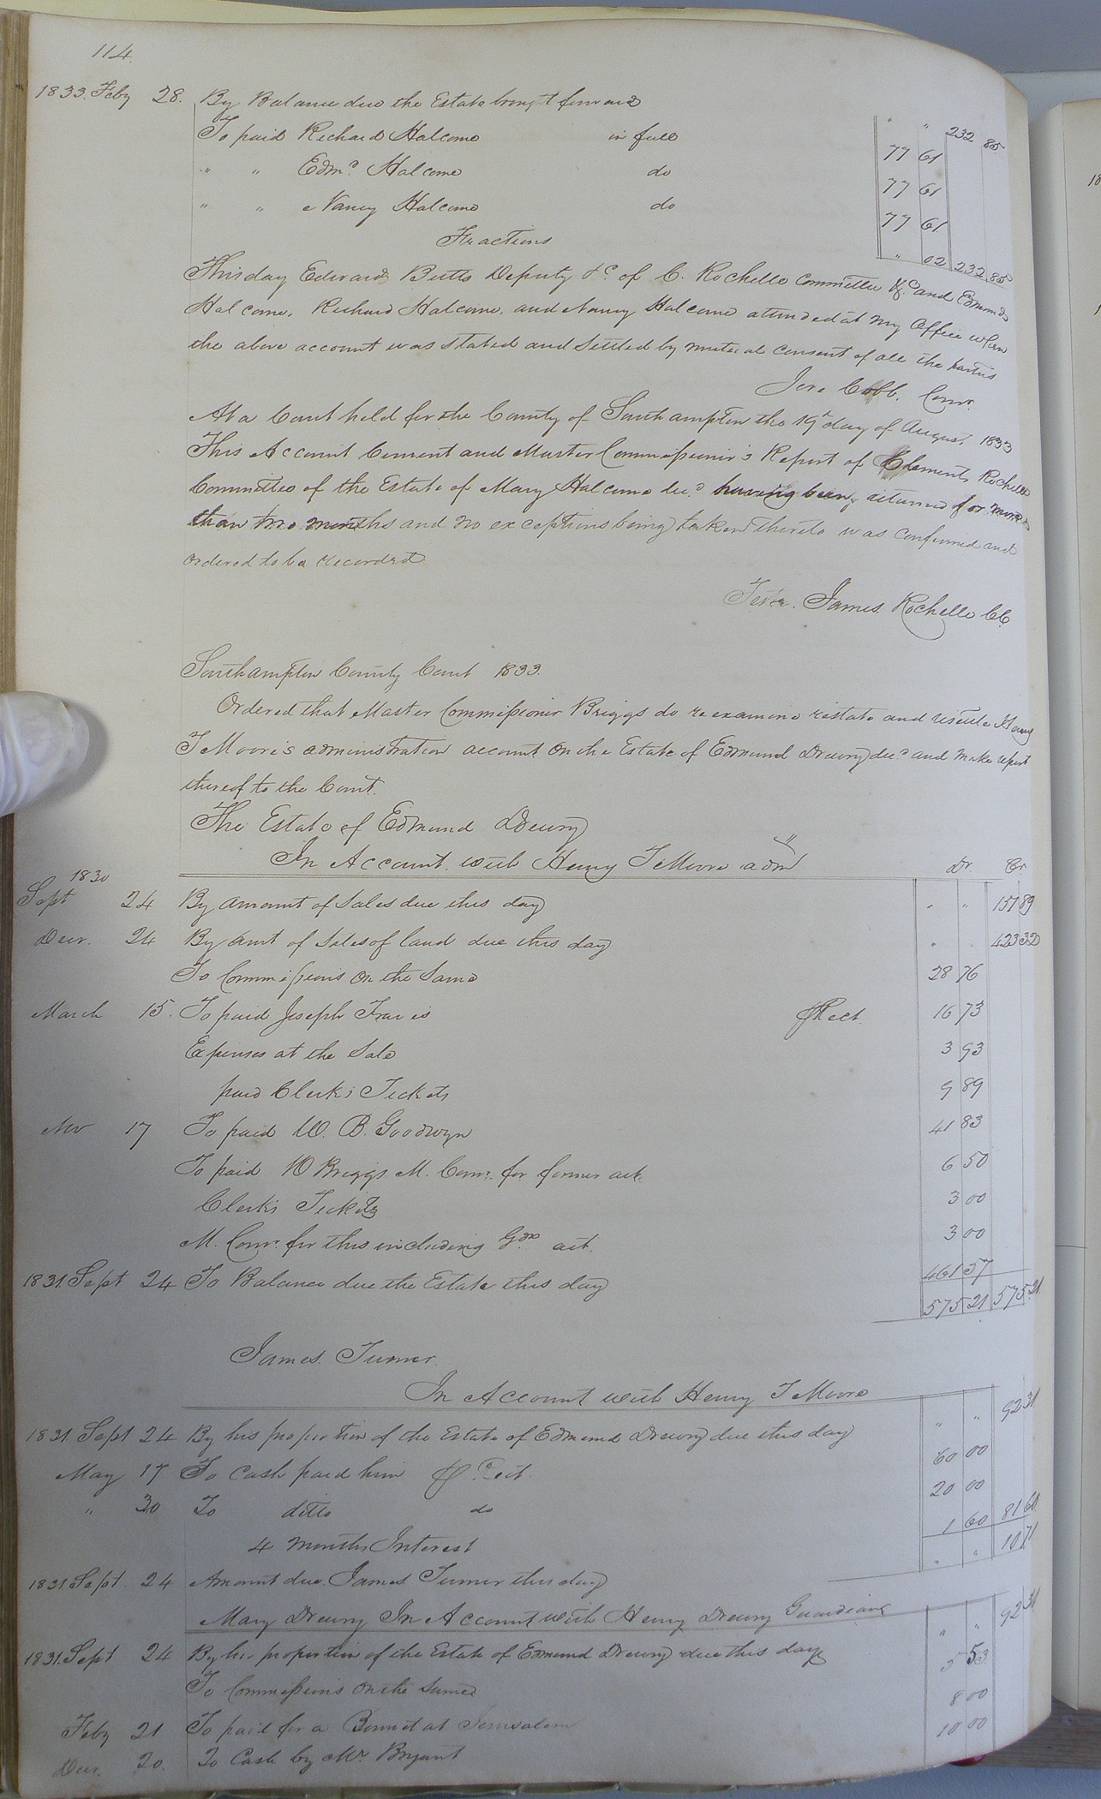 114.
1833. Feby 28. By Balance due the Estate brought forward " " 232 85
To paid Richard Halcome in full 77 61
" " Edmd Halcome do 77 61
" " Nancy Halcome do 77 61
Fractions " 02 232 85
This day Edward Butts Deputy &c. of C. Rochelle Committee &c. and Edmund
Halcome, Richard Halcome, and Nancy Halcome attended at my Office when
the above account was stated and settled by mutual consent of all the parties
Jere Cobb. Comr.
At a Court held for the County of Southampton the 19th day of August 1833
This Account Current and Master Commissioner's Report of Clements Rochelle
Committee of the Estate of Mary Halcome decd having been returned for more
than two months and no exceptions being taken thereto was confirmed and
ordered to be recorded
Teste. James Rochelle CC
Southampton County Court 1833.
Ordered that Master Commissioner Briggs do reexamine restate and resettle Henry
T Moore's administration account on the Estate of Edmund Drewry decd and make report
thereof to the Court.
The Estate of Edmund Drewry
In Account with Henry T Moore adm Dr. Cr
1830
Sept 24 By amount of Sales due this day " " 151 89
Decr. 24 By amt of Sales of land due this day " " 423 32
To Commissions on the Same 28 76
March 15. To paid Joseph Travis Rect 16 73
Expenses at the Sale 3 93
paid Clerk's Tickets 9 89
Nov 17 To paid W. B. Goodwyn 41 83
To paid W Briggs M. Comr. for former act. 6 50
Clerks Tickets 3 00
M. Comr. for this including Gdns act. 3 00
1831. Sept 24 To Balance due the Estate this day 461 57
575 21 575 21
James Turner.
In Account with Henry T Moore
1831 Sept 24 By his proportion of the Estate of Edmund Drewry due this day " " 92 31
May 17 To Cash paid him Rect. 60 00
" 30 To ditto do 20 00
4 months Interest 1 60 81 60
1831 Sept. 24 Amount due James Turner this day " " 10 71
Mary Drewry In Account with Henry Drewry Guardian
1831. Sept 24 By his proportion of the Estate of Edmund Drewry due this day " " 92 31
To Commissions on the Same 5 53
Feby 21 To paid for a Bonnet at Jerusalem 8 00
Decr. 20. To Cash by Mr. Bryant 10 00